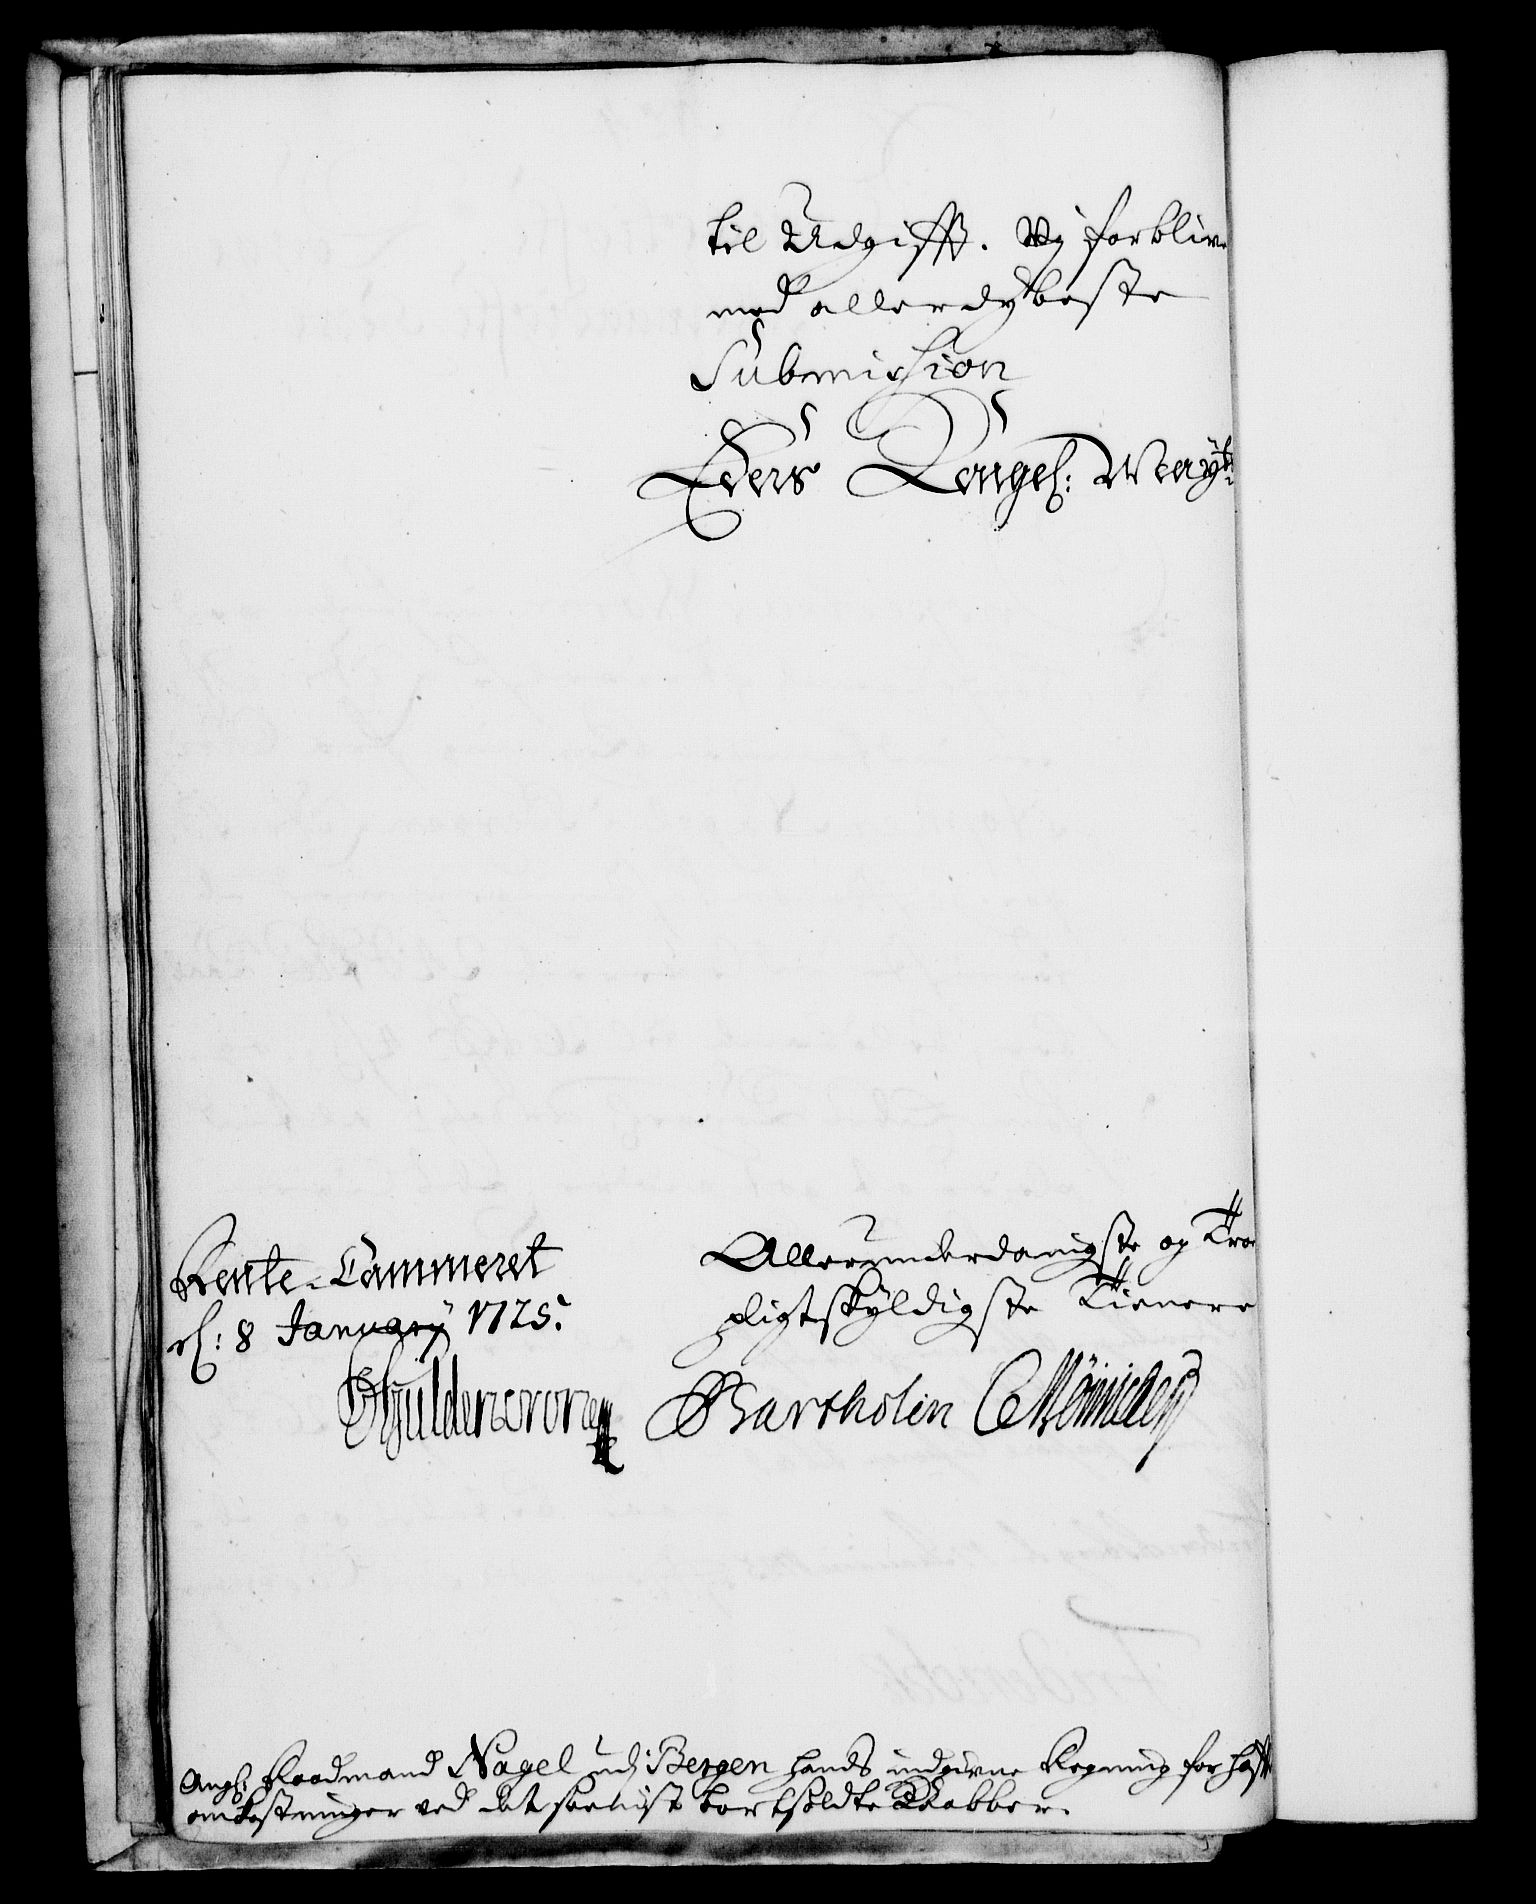 til Udgifft. Vj forblive
med allerdybeste
Submission
Eders Kongel: Mayts
Rente-Cammeret
d: 8 January 1725.
Allerunderdanigste og Troe
pligtskyldigste Tienere
Gyldencrone
Bartholin CMöinichen
Angl: Raadmand Nagel udj Bergen hands indgivne Regning for hafte
omkostninger ved det bortsoldte Kaabber.